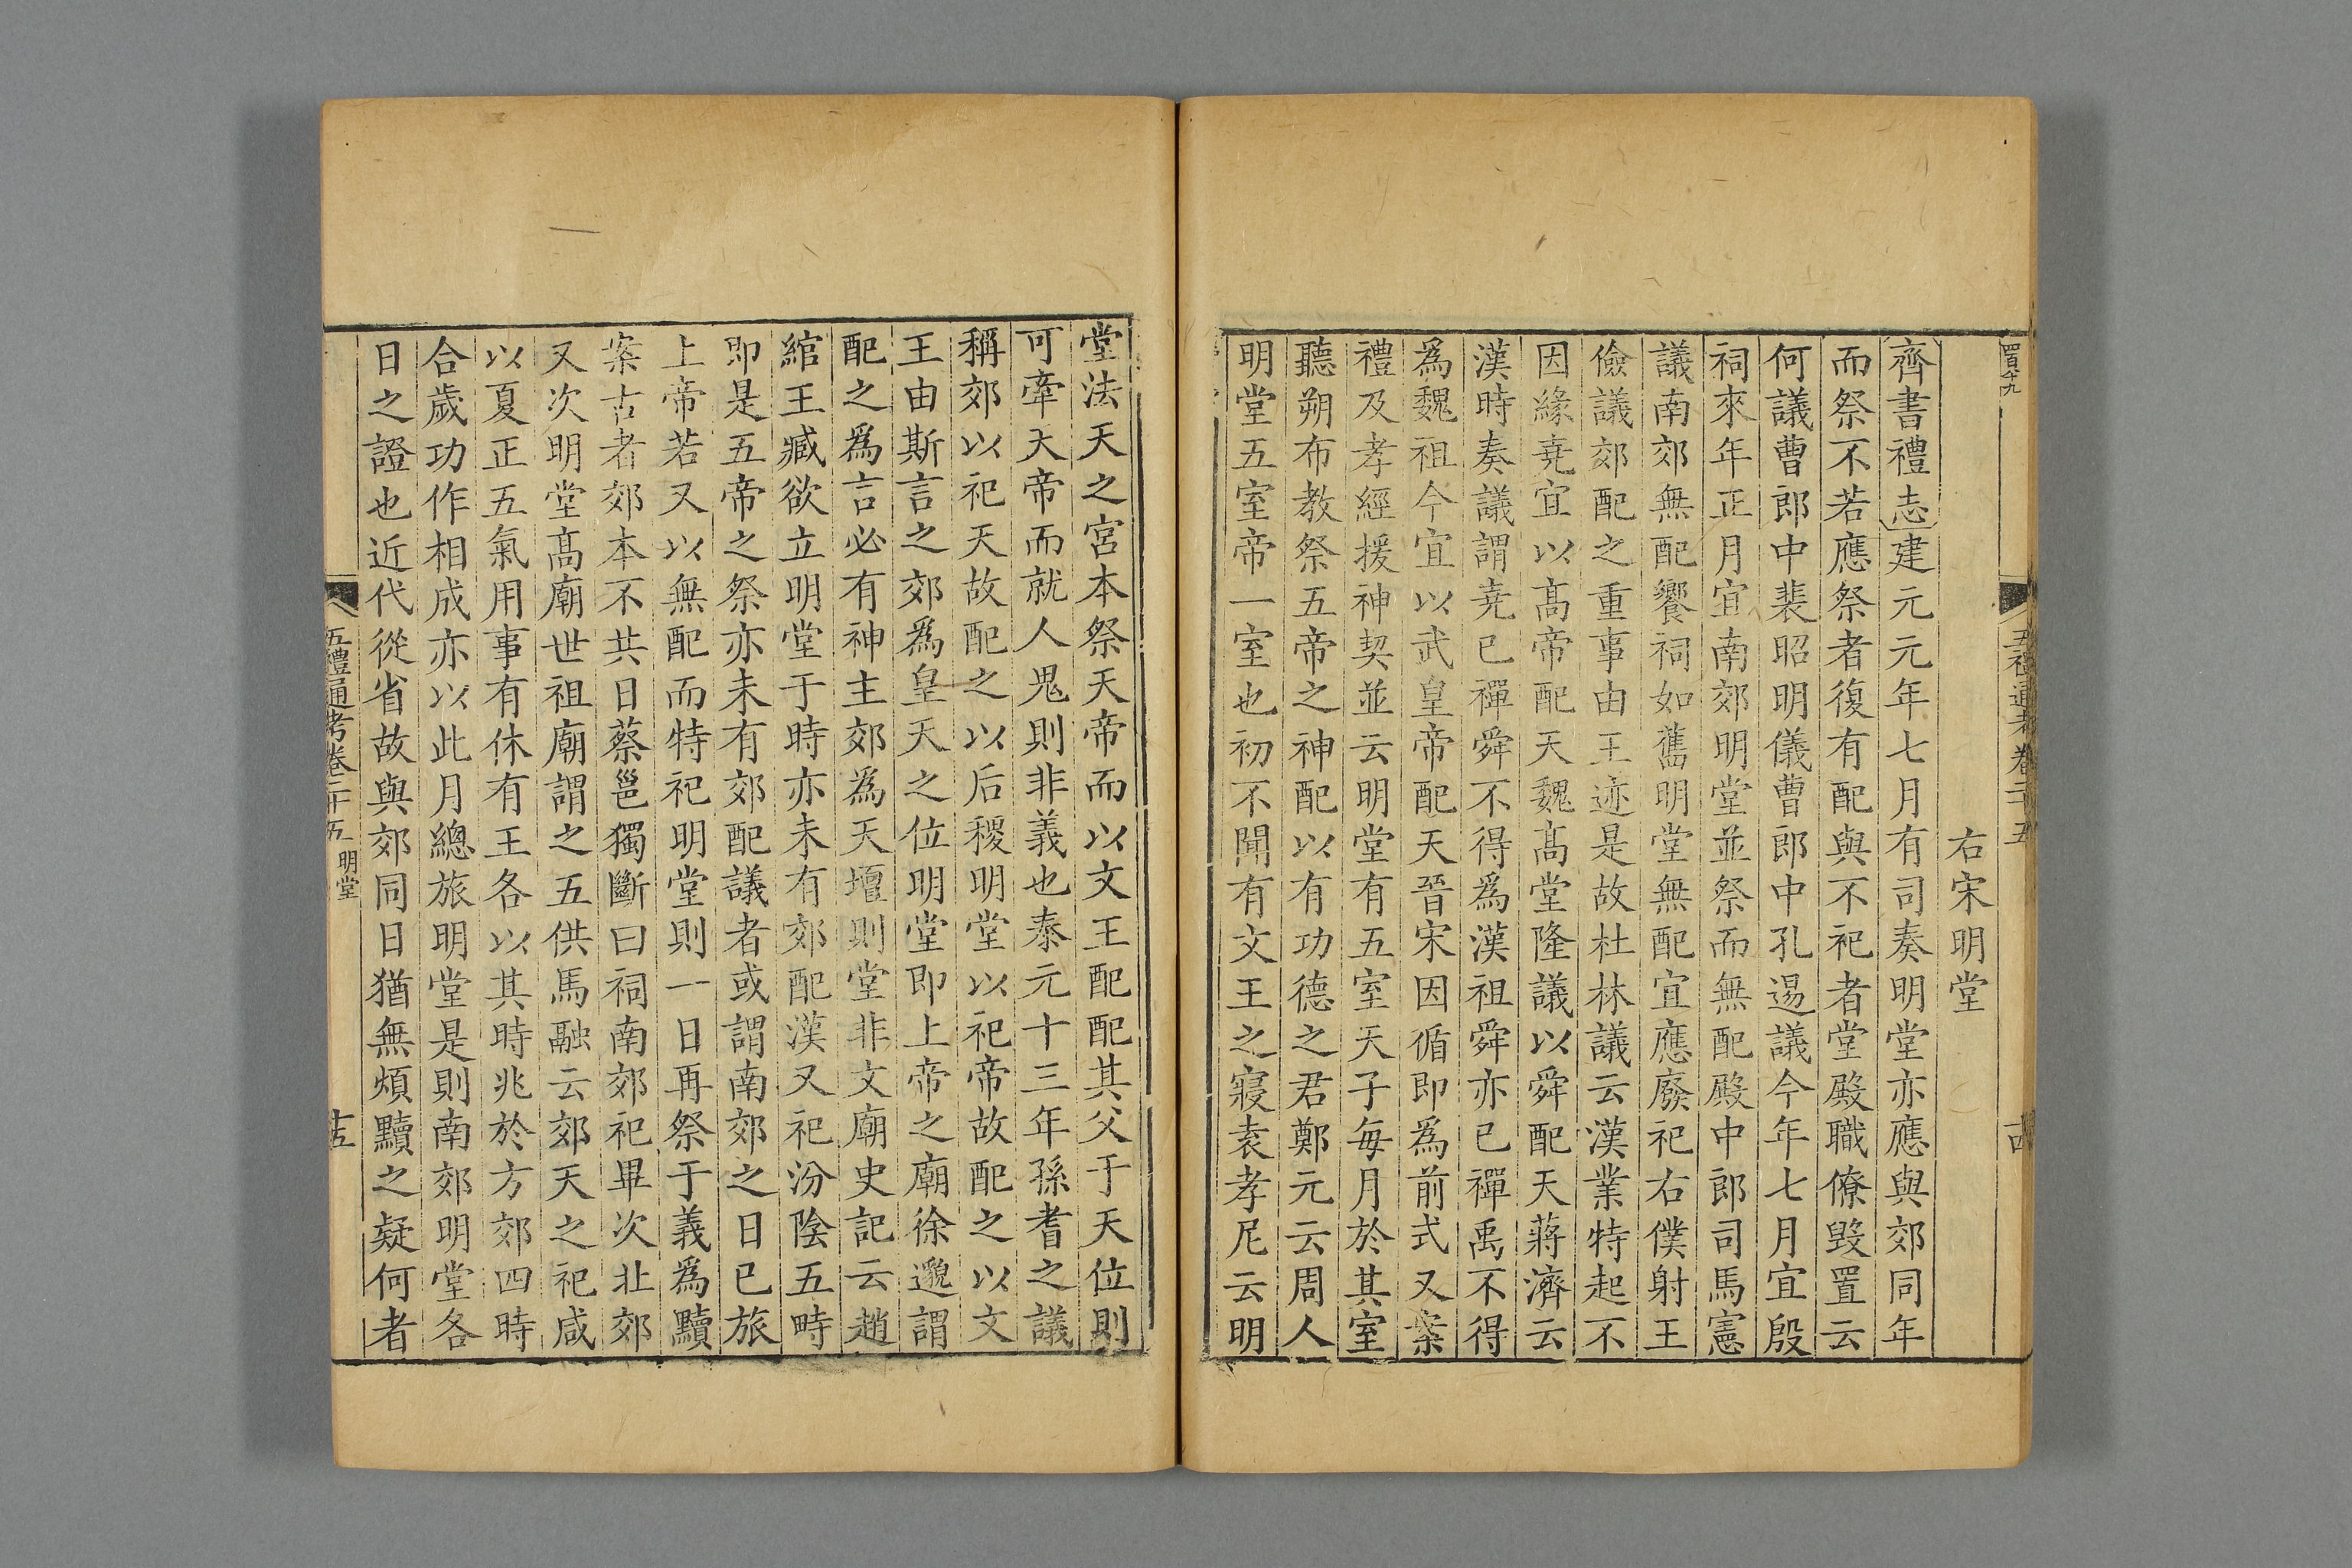 五禮通考卷二十五
右宋明堂
齊書禮志建元元年七月有司奏明堂亦應與郊同年
而祭不若應祭者復有配與不祀者堂殿職僚毀置云
何議曹郎中裴昭明儀曹郎中孔逷議今年七月宜殷
祠來年正月宜南郊明堂並祭而無配殿中郎司馬憲
議南郊無配饗祠如舊明堂無配宜應廢祀右僕射王
儉議郊配之重事由王迹是故杜林議云漢業特起不
因緣堯宜以高帝配天魏高堂隆議以舜配天蔣濟云
漢時奏議謂堯已禪舜不得爲漢祖舜亦已禪禹不得
爲魏祖今宜以武皇帝配天晉宋因循即爲前式又案
禮及孝經援神契並云明堂有五室天子每月於其室
聽朔布教祭五帝之神配以有功德之君鄭元云周人
明堂五室帝一室也初不聞有文王之寢袁孝尼云明
堂法天之宮本祭天帝而以文王配配其父于天位則
可牽天帝而就人鬼則非義也泰元十三年孫耆之議
稱郊以祀天故配之以后稷明堂以祀帝故配之以文
王由斯言之郊爲皇天之位明堂即上帝之廟徐邈謂
配之爲言必有神主郊爲天壇則堂非文廟史記云趙
綰王臧欲立明堂于時亦未有郊配漢又祀汾陰五畤
即是五帝之祭亦未有郊配議者或謂南郊之日已旅
上帝若又以無配而特祀明堂則一日再祭于義爲黷
案古者郊本不共日蔡邕獨斷曰祠南郊祀畢次北郊
又次明堂高廟世祖廟謂之五供馬融云郊天之祀咸
以夏正五氣用事有休有王各以其時兆於方郊四時
合歲功作相成亦以此月總旅明堂是則南郊明堂各
日之證也近代從省故與郊同日猶無煩黷之疑何者
五禮通考卷二十五 明堂
十五